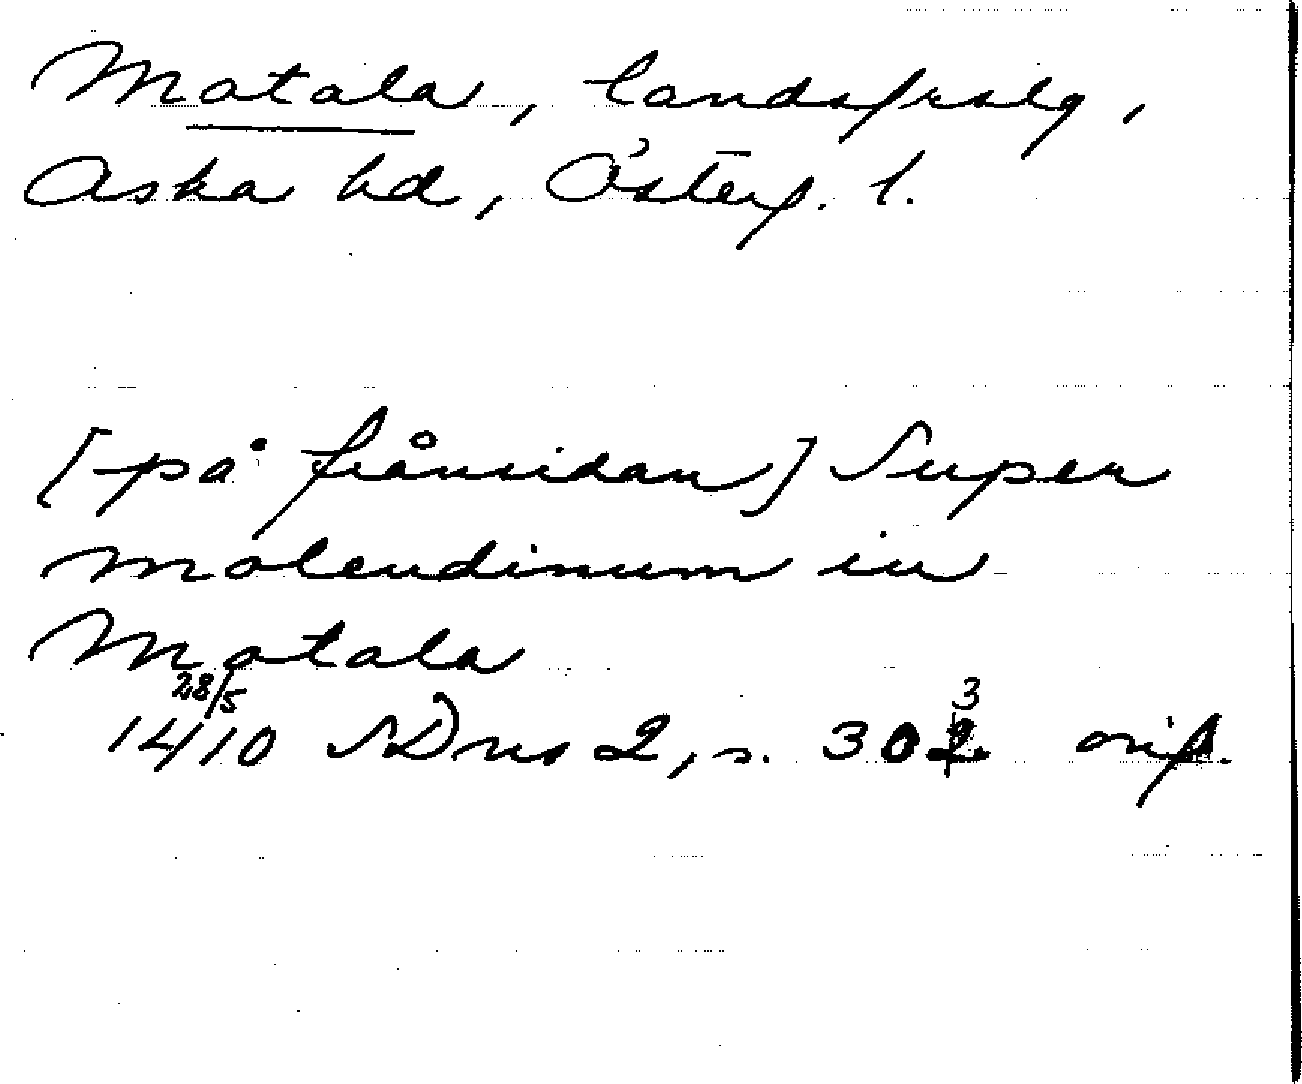 Motala, landsfrslg,
Aska hd, Österg. l.
[på frånsidan] Super
molendinum in
Motala
28/5 3
14/10 SDns 2, s. 302 orig.